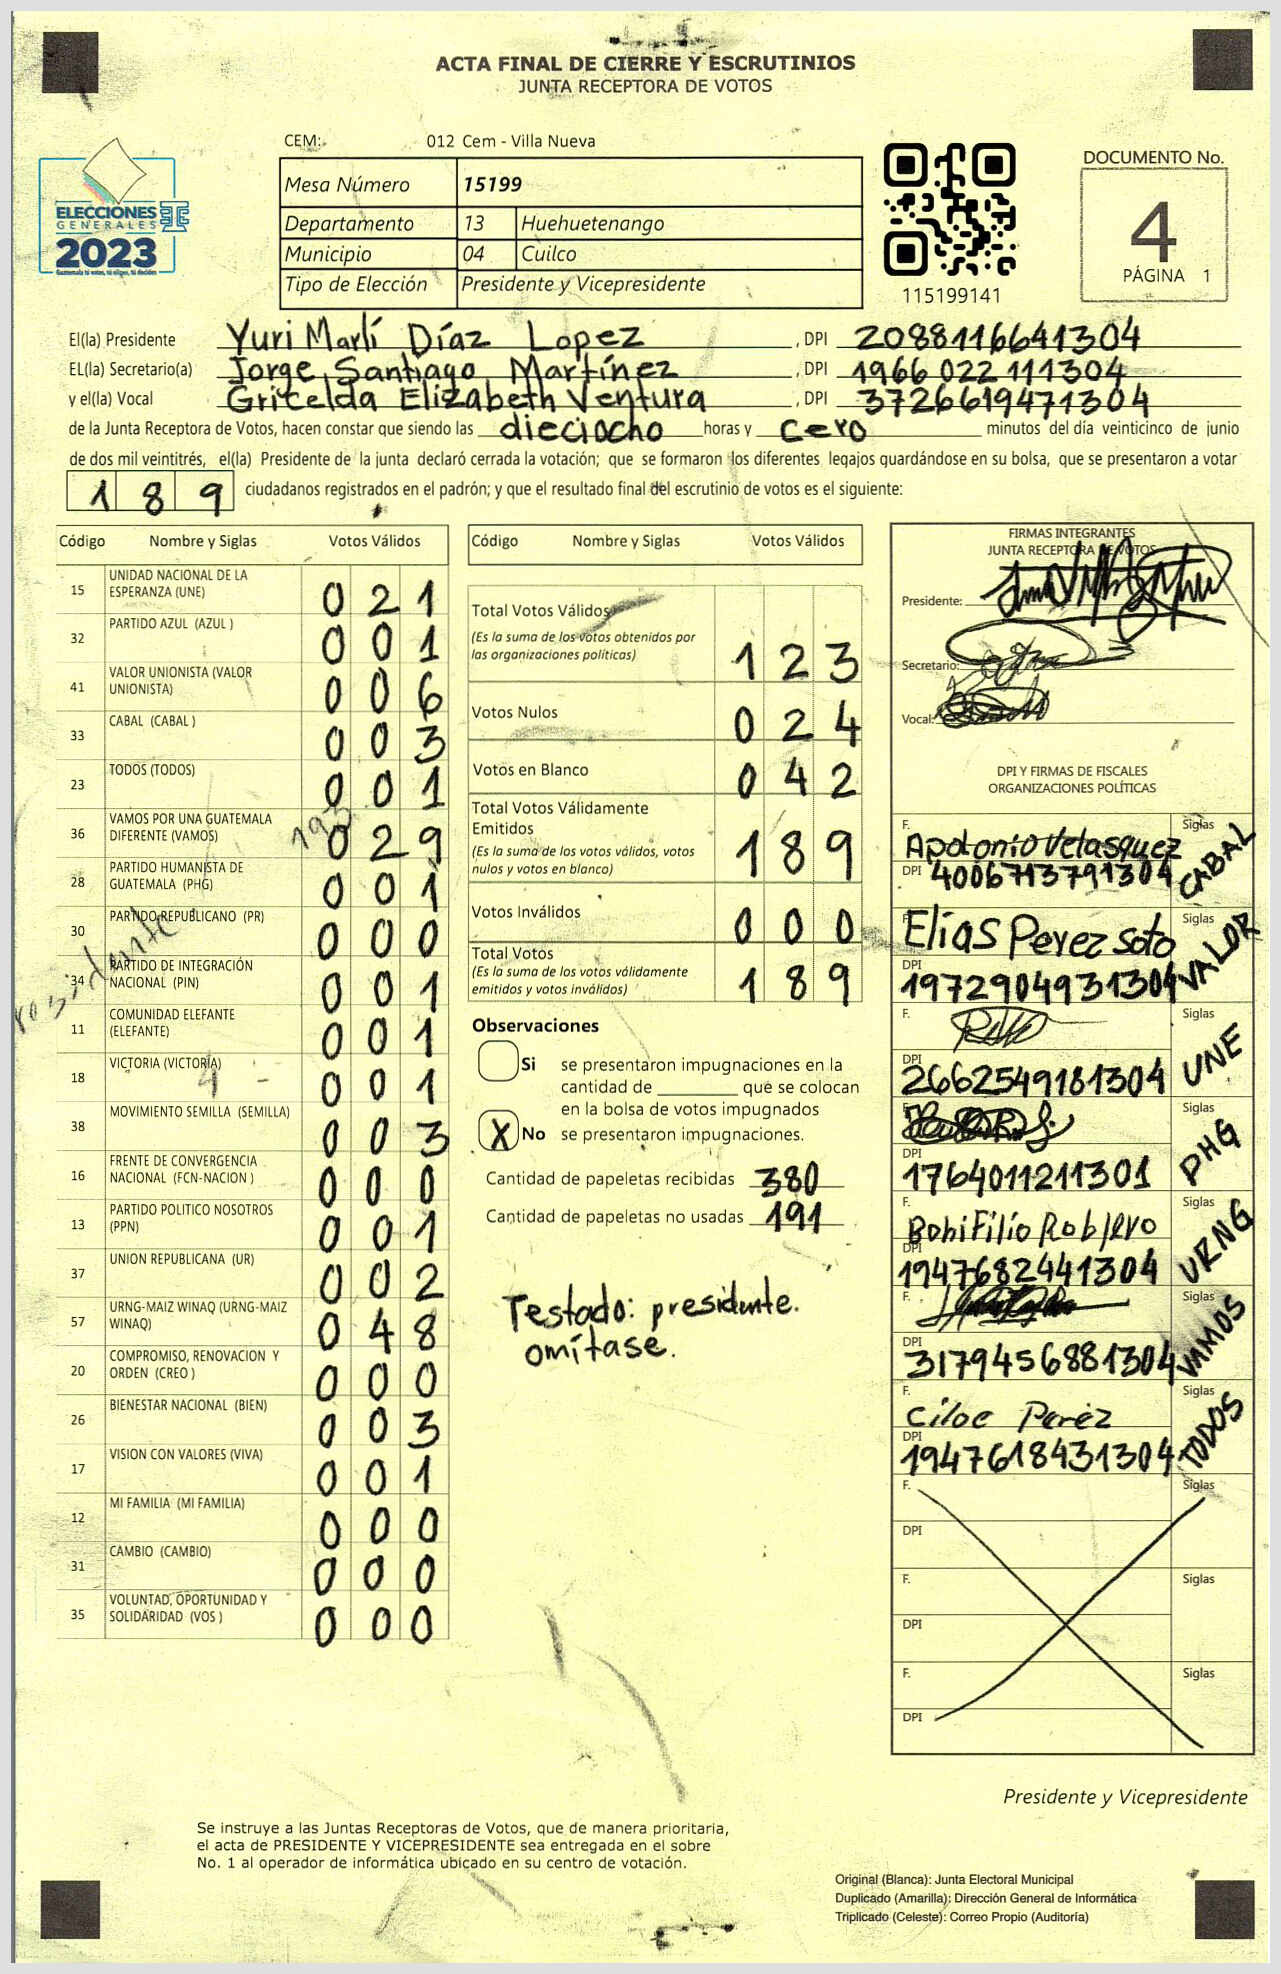 ACTA FINAL DE CIERRE Y ESCRUTINIOS
JUNTA RECEPTORA DE VOTOS
CEM: 012 Cem - Villa Nueva
ELECCIONES
GENERALES
2023
Guatemala tú votas, tú eliges, tú decides
Mesa Número 15199
Departamento 13 Huehuetenango
Municipio 04 Cuilco
Tipo de Elección Presidente y Vicepresidente
115199141
DOCUMENTO No.
4
PÁGINA 1
El(la) Presidente Yuri Marlí Díaz Lopez , DPI 2088116641304
EL(la) Secretario(a) Jorge Santiago Martínez , DPI 1966 022 111304
y el(la) Vocal Gricelda Elizabeth Ventura , DPI 3726619471304
de la Junta Receptora de Votos, hacen constar que siendo las dieciocho horas y cero minutos del día veinticinco de junio
de dos mil veintitrés, el(la) Presidente de la junta declaró cerrada la votación; que se formaron los diferentes legajos guardándose en su bolsa, que se presentaron a votar
1 8 9 ciudadanos registrados en el padrón; y que el resultado final del escrutinio de votos es el siguiente:
Código Nombre y Siglas Votos Válidos
15 UNIDAD NACIONAL DE LA ESPERANZA (UNE) 0 2 1
32 PARTIDO AZUL (AZUL ) 0 0 1
41 VALOR UNIONISTA (VALOR UNIONISTA) 0 0 6
33 CABAL (CABAL ) 0 0 3
23 TODOS (TODOS) 0 0 1
36 VAMOS POR UNA GUATEMALA DIFERENTE (VAMOS) 0 2 9
28 PARTIDO HUMANISTA DE GUATEMALA (PHG) 0 0 1
30 PARTIDO REPUBLICANO (PR) 0 0 0
34 PARTIDO DE INTEGRACIÓN NACIONAL (PIN) 0 0 1
11 COMUNIDAD ELEFANTE (ELEFANTE) 0 0 1
18 VICTORIA (VICTORIA) 0 0 1
38 MOVIMIENTO SEMILLA (SEMILLA) 0 0 3
16 FRENTE DE CONVERGENCIA NACIONAL (FCN-NACION ) 0 0 0
13 PARTIDO POLITICO NOSOTROS (PPN) 0 0 1
37 UNION REPUBLICANA (UR) 0 0 2
57 URNG-MAIZ WINAQ (URNG-MAIZ WINAQ) 0 4 8
20 COMPROMISO, RENOVACION Y ORDEN (CREO ) 0 0 0
26 BIENESTAR NACIONAL (BIEN) 0 0 3
17 VISION CON VALORES (VIVA) 0 0 1
12 MI FAMILIA (MI FAMILIA) 0 0 0
31 CAMBIO (CAMBIO) 0 0 0
35 VOLUNTAD, OPORTUNIDAD Y SOLIDARIDAD (VOS ) 0 0 0
Código Nombre y Siglas Votos Válidos
Total Votos Válidos 1 2 3
(Es la suma de los votos obtenidos por
las organizaciones políticas)
Votos Nulos 0 2 4
Votos en Blanco 0 4 2
Total Votos Válidamente
Emitidos 1 8 9
(Es la suma de los votos válidos, votos
nulos y votos en blanco)
Votos Inválidos 0 0 0
Total Votos 1 8 9
(Es la suma de los votos válidamente
emitidos y votos inválidos)
Observaciones
Si se presentaron impugnaciones en la
cantidad de ________ que se colocan
en la bolsa de votos impugnados
X No se presentaron impugnaciones.
Cantidad de papeletas recibidas 380
Cantidad de papeletas no usadas 191
Testado: presidente.
omítase.
FIRMAS INTEGRANTES
JUNTA RECEPTORA DE VOTOS
Presidente:
Secretario:
Vocal:
DPI Y FIRMAS DE FISCALES
ORGANIZACIONES POLÍTICAS
F. Apolonio Velasquez Siglas CABAL
DPI 4006713791304
F. Elías Perez Soto Siglas VALOR
DPI 1972904931304
F. Siglas UNE
DPI 2662549181304
F. Siglas PHG
DPI 1764011211301
F. Bonifilio Roblero Siglas URNG
DPI 1947682441304
F. Siglas VAMOS
DPI 3179456881304
F. Ciloe Peréz Siglas TODOS
DPI 1947618431304
F. Siglas
DPI
F. Siglas
DPI
F. Siglas
DPI
Presidente y Vicepresidente
Se instruye a las Juntas Receptoras de Votos, que de manera prioritaria,
el acta de PRESIDENTE Y VICEPRESIDENTE sea entregada en el sobre
No. 1 al operador de informática ubicado en su centro de votación.
Original (Blanca): Junta Electoral Municipal
Duplicado (Amarilla): Dirección General de Informática
Triplicado (Celeste): Correo Propio (Auditoría)